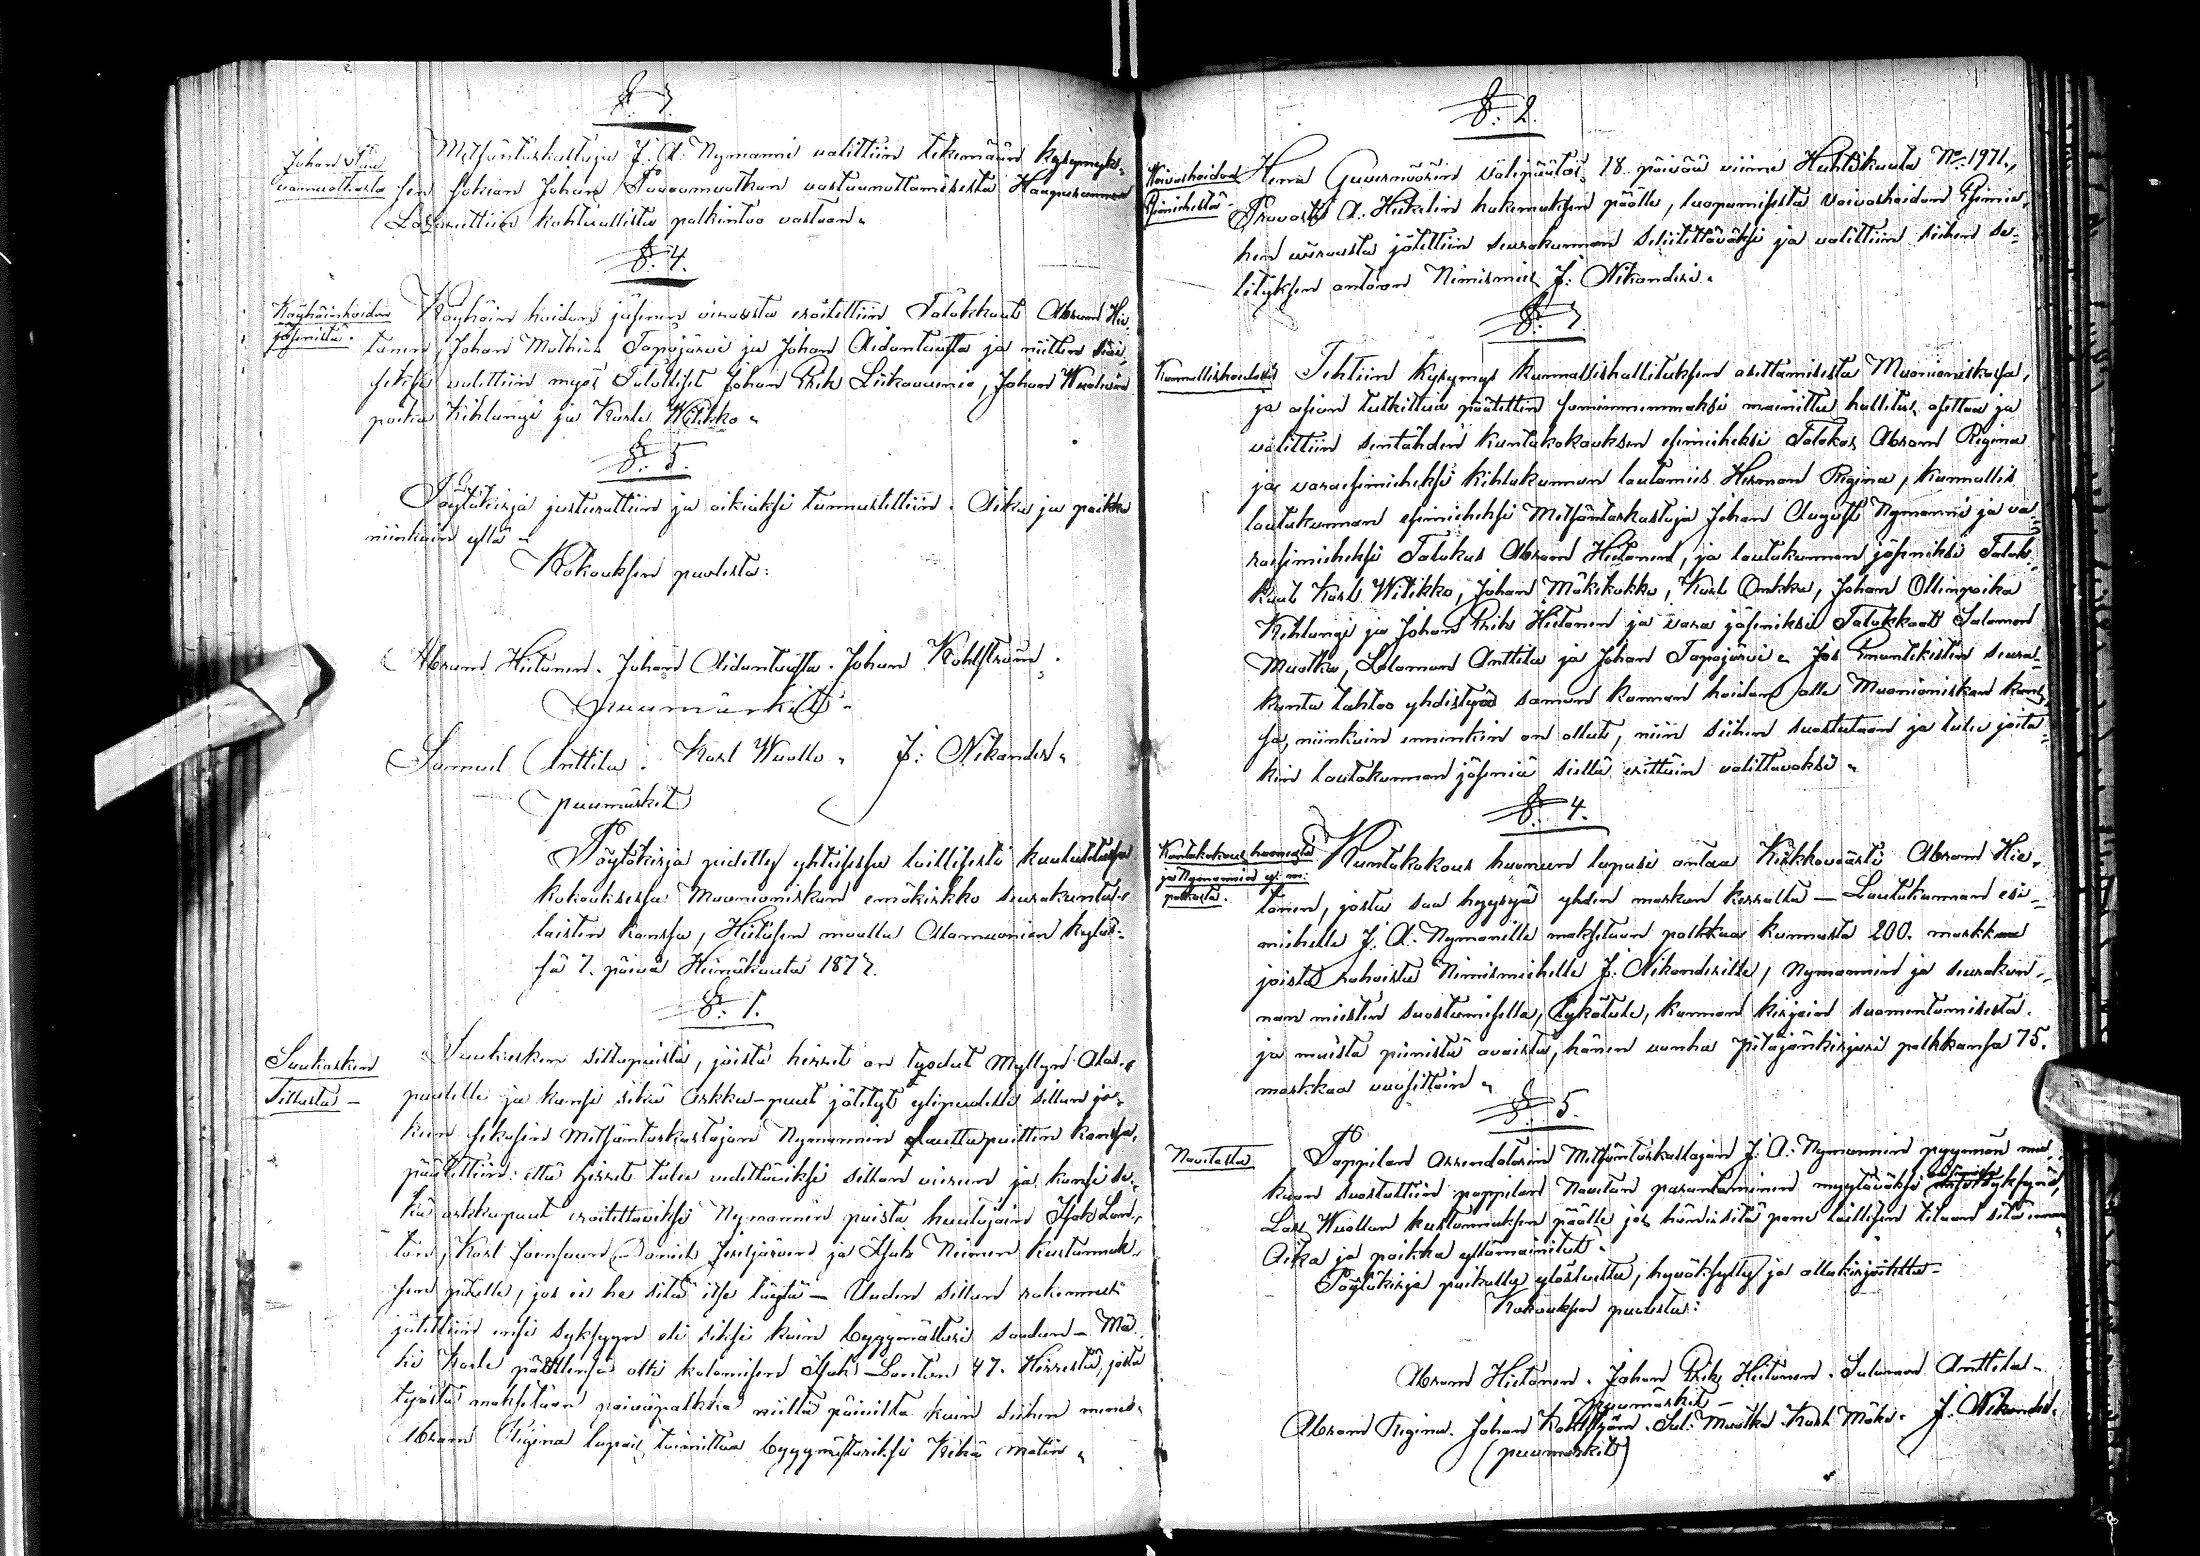 §: 3.
Johan Paa
vomuotkasta
Metsäntarkastaja J. A. Nymanni valittiin tekemään kysymyk-
sen sotian Johan Paavomuotkan vastaanottamisesta Haaparannan
Lazarettiin kohtuullista palkintoa vastaan.
§: 4.
Köyhäinhoidon
jäsenistä.
Köyhäin hoidon jäsenen virasta eroitettiin Talokkaat Abram Hie-
tanen, Johan Mathias Tapojärvi ja Johan Aidantausta ja niitten siai-
seksi valittiin myös Talolliset Johan Erik Liikavainio, Johan
poika Kihlangi ja Karle Wilikko.
§: 5.
Pöytäkirja justerattiin ja oikiaksi tunnustettiin. Aika ja paikka
niinkuin yllä.
Kokouksen puolesta:
Abram Hietanen. Johan Aidantausta. Johan Kohlström.
puumärkit.
Samuel Anttila. Karl Wuollo. J: Nikander.
puumärkit
Pöytäkirja pidetty yhteisessä laillisesti kuulutetussa
kokouksessa Muonioniskan emäkirkko seurakunta-
laisten kanssa, Hietasen maalla Alamuonion kyläs-
sä 7. päivä Heinäkuuta 1877.
§: 1.
Saukosken
Sillasta –
Saukosken siltapuista, joista hirret on tyodut Myllyn Alas-
puolelle ja kansi sekä Arkku-puut jätetyt ylipuolelle sillan jo-
kun sekasin Metsäntarkastajan Nymannin lauttapuitten kanssa,
päätettiin: että hirret tulee vedettäviksi sillan viereen ja kansi se-
kä arkkupuut eroitettaviksi Nymannin puista huutajain Isak Lan-
ton, Karl Joensuun, Daniel Jerisjärven ja Isak Niemen kustannuk-
sen päälle, jos ei he sitä itse täytä – Uuden sillan rakennus
jätettiin ensi syksyyn eli siksi kuin byggmästari saadan – Mä-
ki Karle päällensä otti kolomisen Isak Lanton 47. Hirrestä, josta
työstä maksetaan paiväpalkka niiltä päiviltä kuin siihen menee.
Abram Regina lupais toimittaa byggmästariksi Kekä matin.
§: 2.
Vaivashoidon
Esimiehestä.
Herra Guvernöörin välipäätös 18. päivää viime Huhtikuuta No. 1971.,
Provasti A: Heikelin hakemuksen päälle, luopumisesta vaivashoidon Esimie-
hen virasta jätettiin seurakunnan selitettäväksi ja valittiin siihen se-
lityksen antaan Nimismies J: Nikanderi.
§: 3.
Kunnallishoidosta
Tehtiin kysymys kunnallishallituksen asettamisesta Muonioniskassa,
ja asian tutkittua päätettiin somimmemmaksi mainittu hallitus asettaa ja
valittiin sentähden kuntakokouksen esimieheksi Talokas Abram Regina
ja varaesimieheksi kihlakunnan lautamies Herman Regina, kunnallis
lautakunnan esimieheksi Metsäntarkastaja Johan August Nymanni ja va-
raesimieheksi Talokas Abram Hietanen, ja lautakunnan jäseniksi Talok-
kaat Karl Wilikko, Johan Mäkikokko, Karl Onkka, Johan Ollinpoika
Kihlangi ja Johan Erik Hietanen ja vara jäseniksi Talokkaat Salamon
Muotka, Salomon Anttila ja Johan Tapojärvi. Jos Enontekisten seura-
kunta tahtoo yhdistyä saman kunnan hoidon alle Muonioniskan kans-
sa, niinkuin ennenkin on ollut, niin siihen suostutaan ja tulee joita-
kin lautakunnan jäseniä sieltä erittäin valittavaksi.
§: 4.
Kuntakokous huoneesta
ja Nymannin
palkasta.
Kuntakokous huoneen lupasi antaa Kirkkoväärti Abram Hie-
tanen, josta saa hyyryä yhden markan kerralta – Lautakunnan esi-
miehelle J. A. Nymanille maksetaan palkkaa kunnasta 200. markkaa
joista rahoista Nimismiehelle J: Nikanderille, Nymannin ja seurakun-
nan miesten suostumisella, lykätään, kunnan kirjain suomentamisesta.
ja muista pienistä avaista, hänen vanha pitäjänkirjuri palkkansa 75.
markkaa vuosittain.
§: 5.
Navetasta
Pappilan Arrendatorin Metsäntarkastajan J: A: Nymannin pyynnön mu-
kaan suostuttiin pappilan Navetan parantaminen myytäväksi syksynä,
Lars Wuollon kustannuksen päälle jos hän ei sitä pane lailliseen tilaan sitä ennen
Aika ja paikka yllämainitut.
Pöytäkirja paikalla ylösluettu, hyväksytty ja allakirjoitettu.
Kokouksen puolesta:
Abram Hietanen. Johan Erik Hietanen. Salamon Anttila.
puumärkit –
Abram Regina. Johan Kohlström. Sal: Muotka. Karl Mäki. J. Nikander.
(puumärkit)